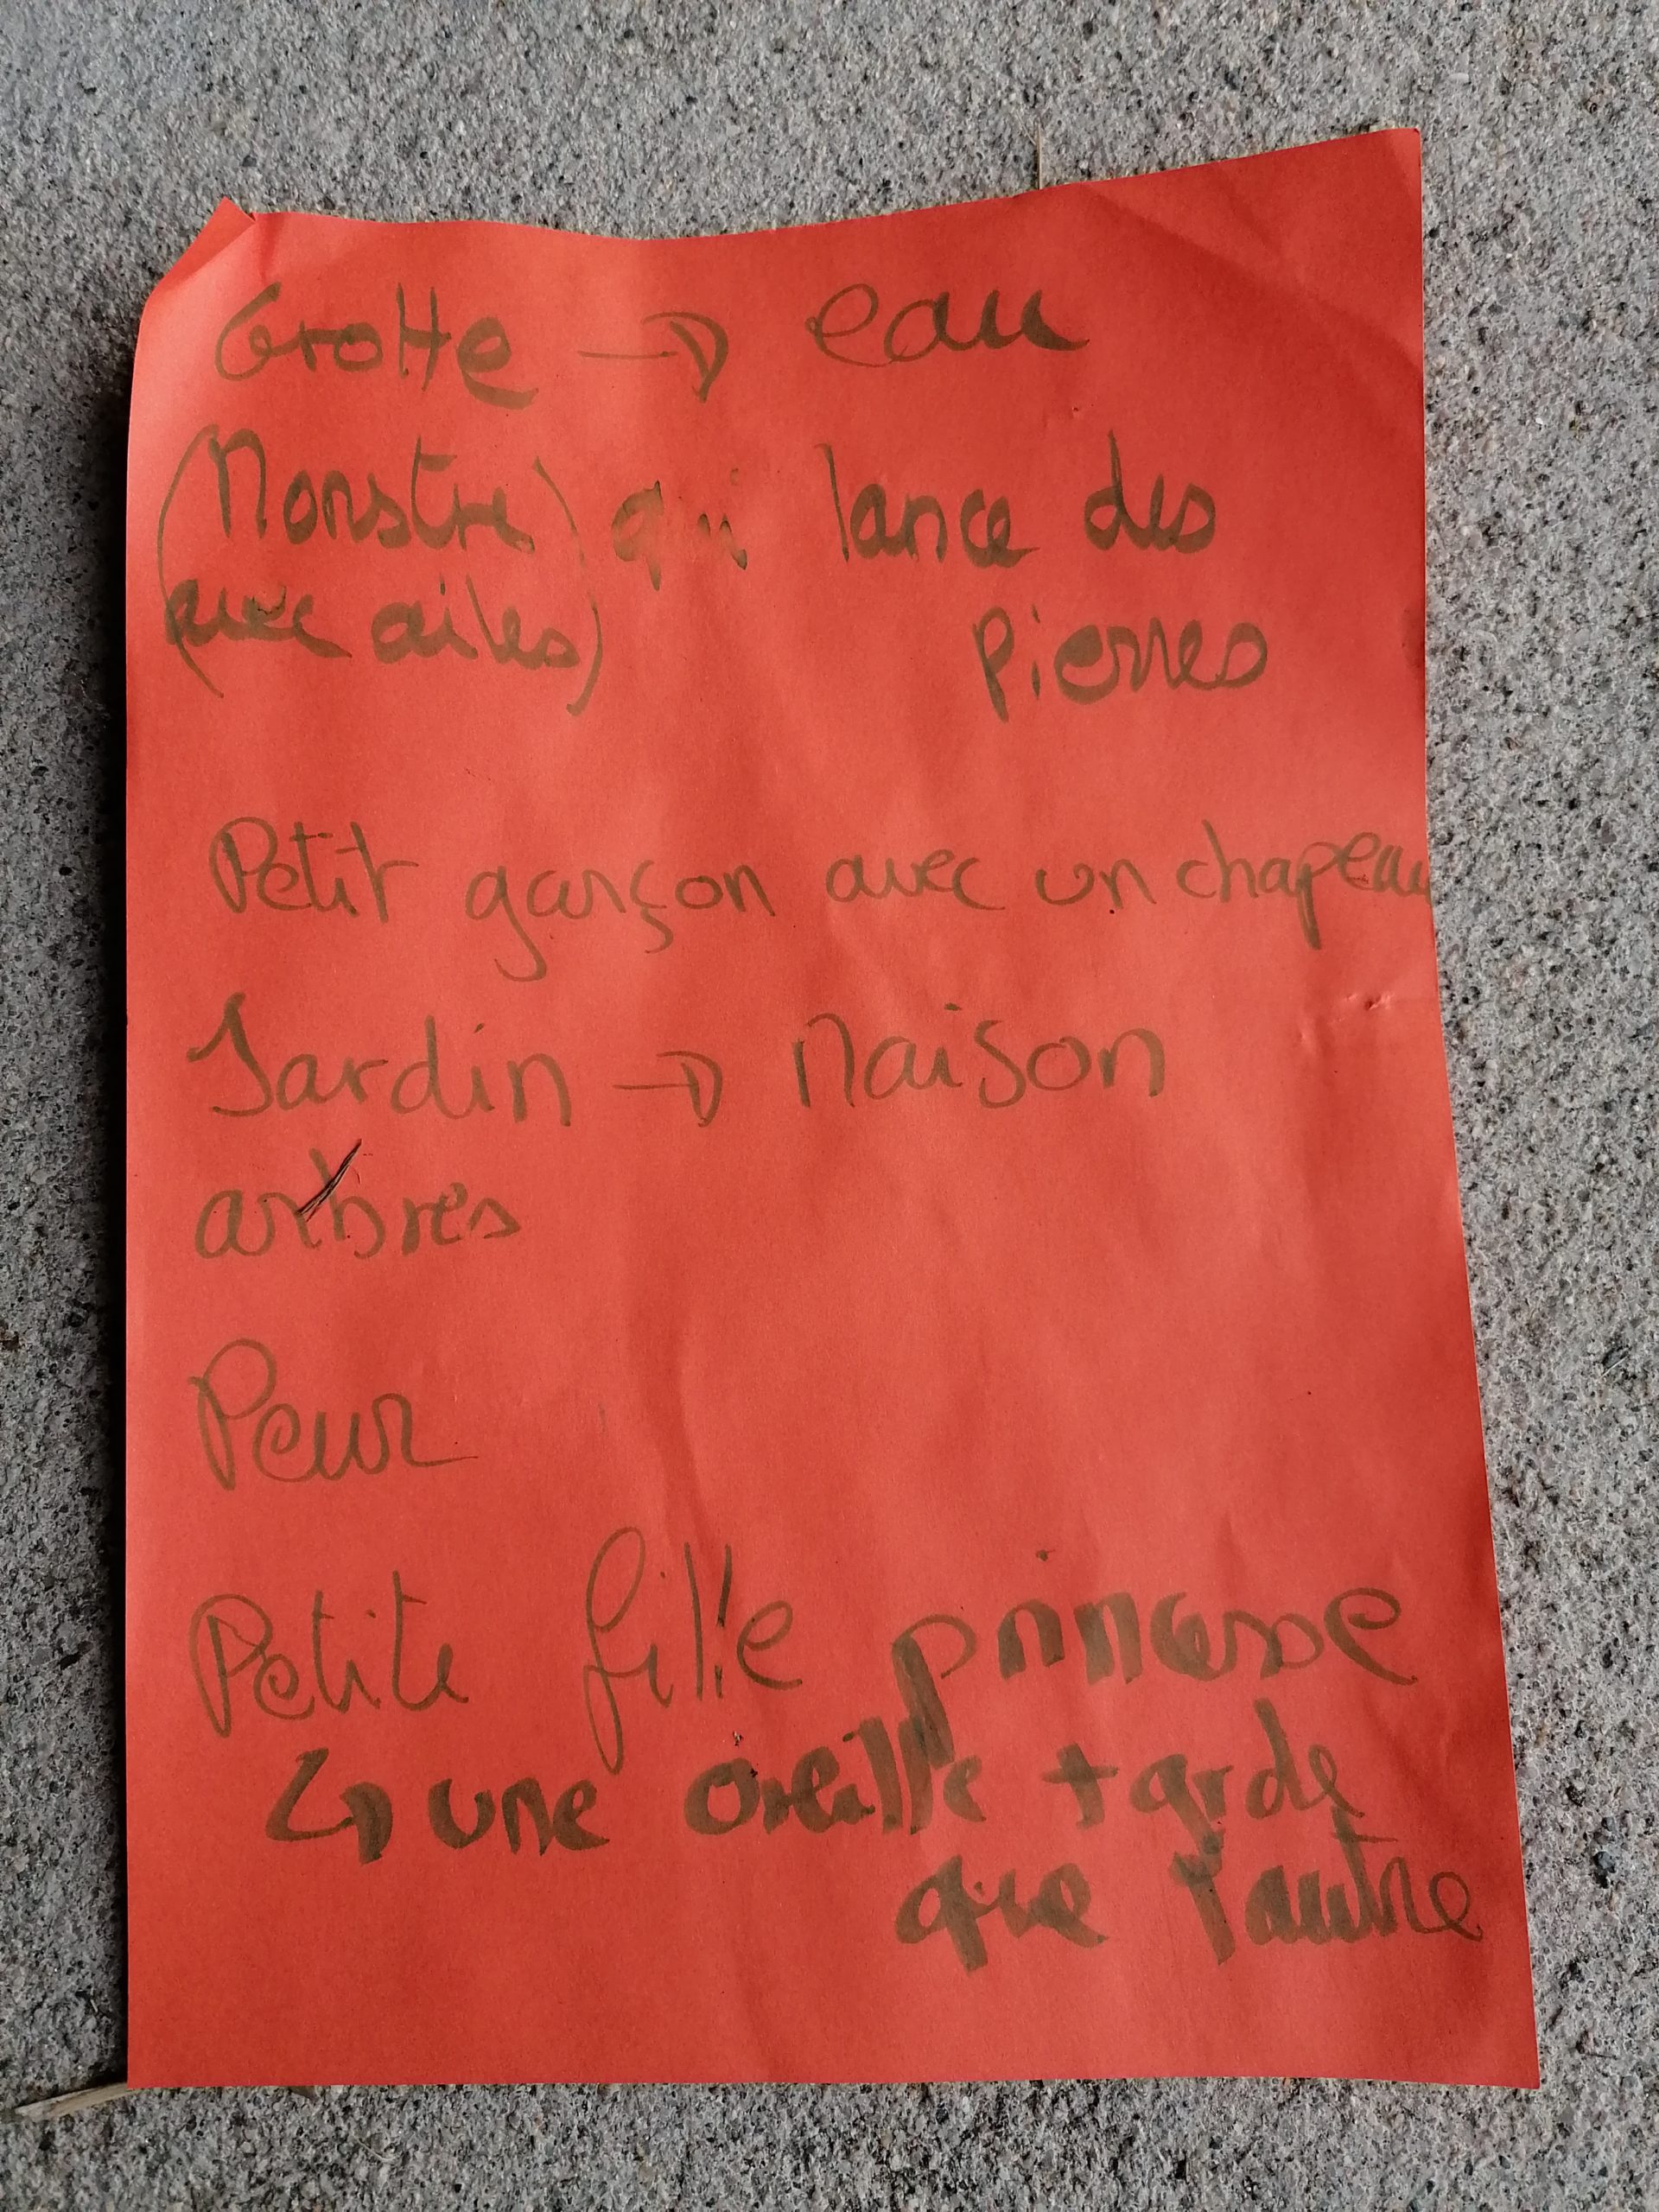 Grotte → eau
(Monstre) qui lance des
(avec ailes) pierres
Petit garçon avec un chapeau
Jardin → Maison
arbres
Peur
Petite fille princesse
↳ une oreille + grde
que l'autre